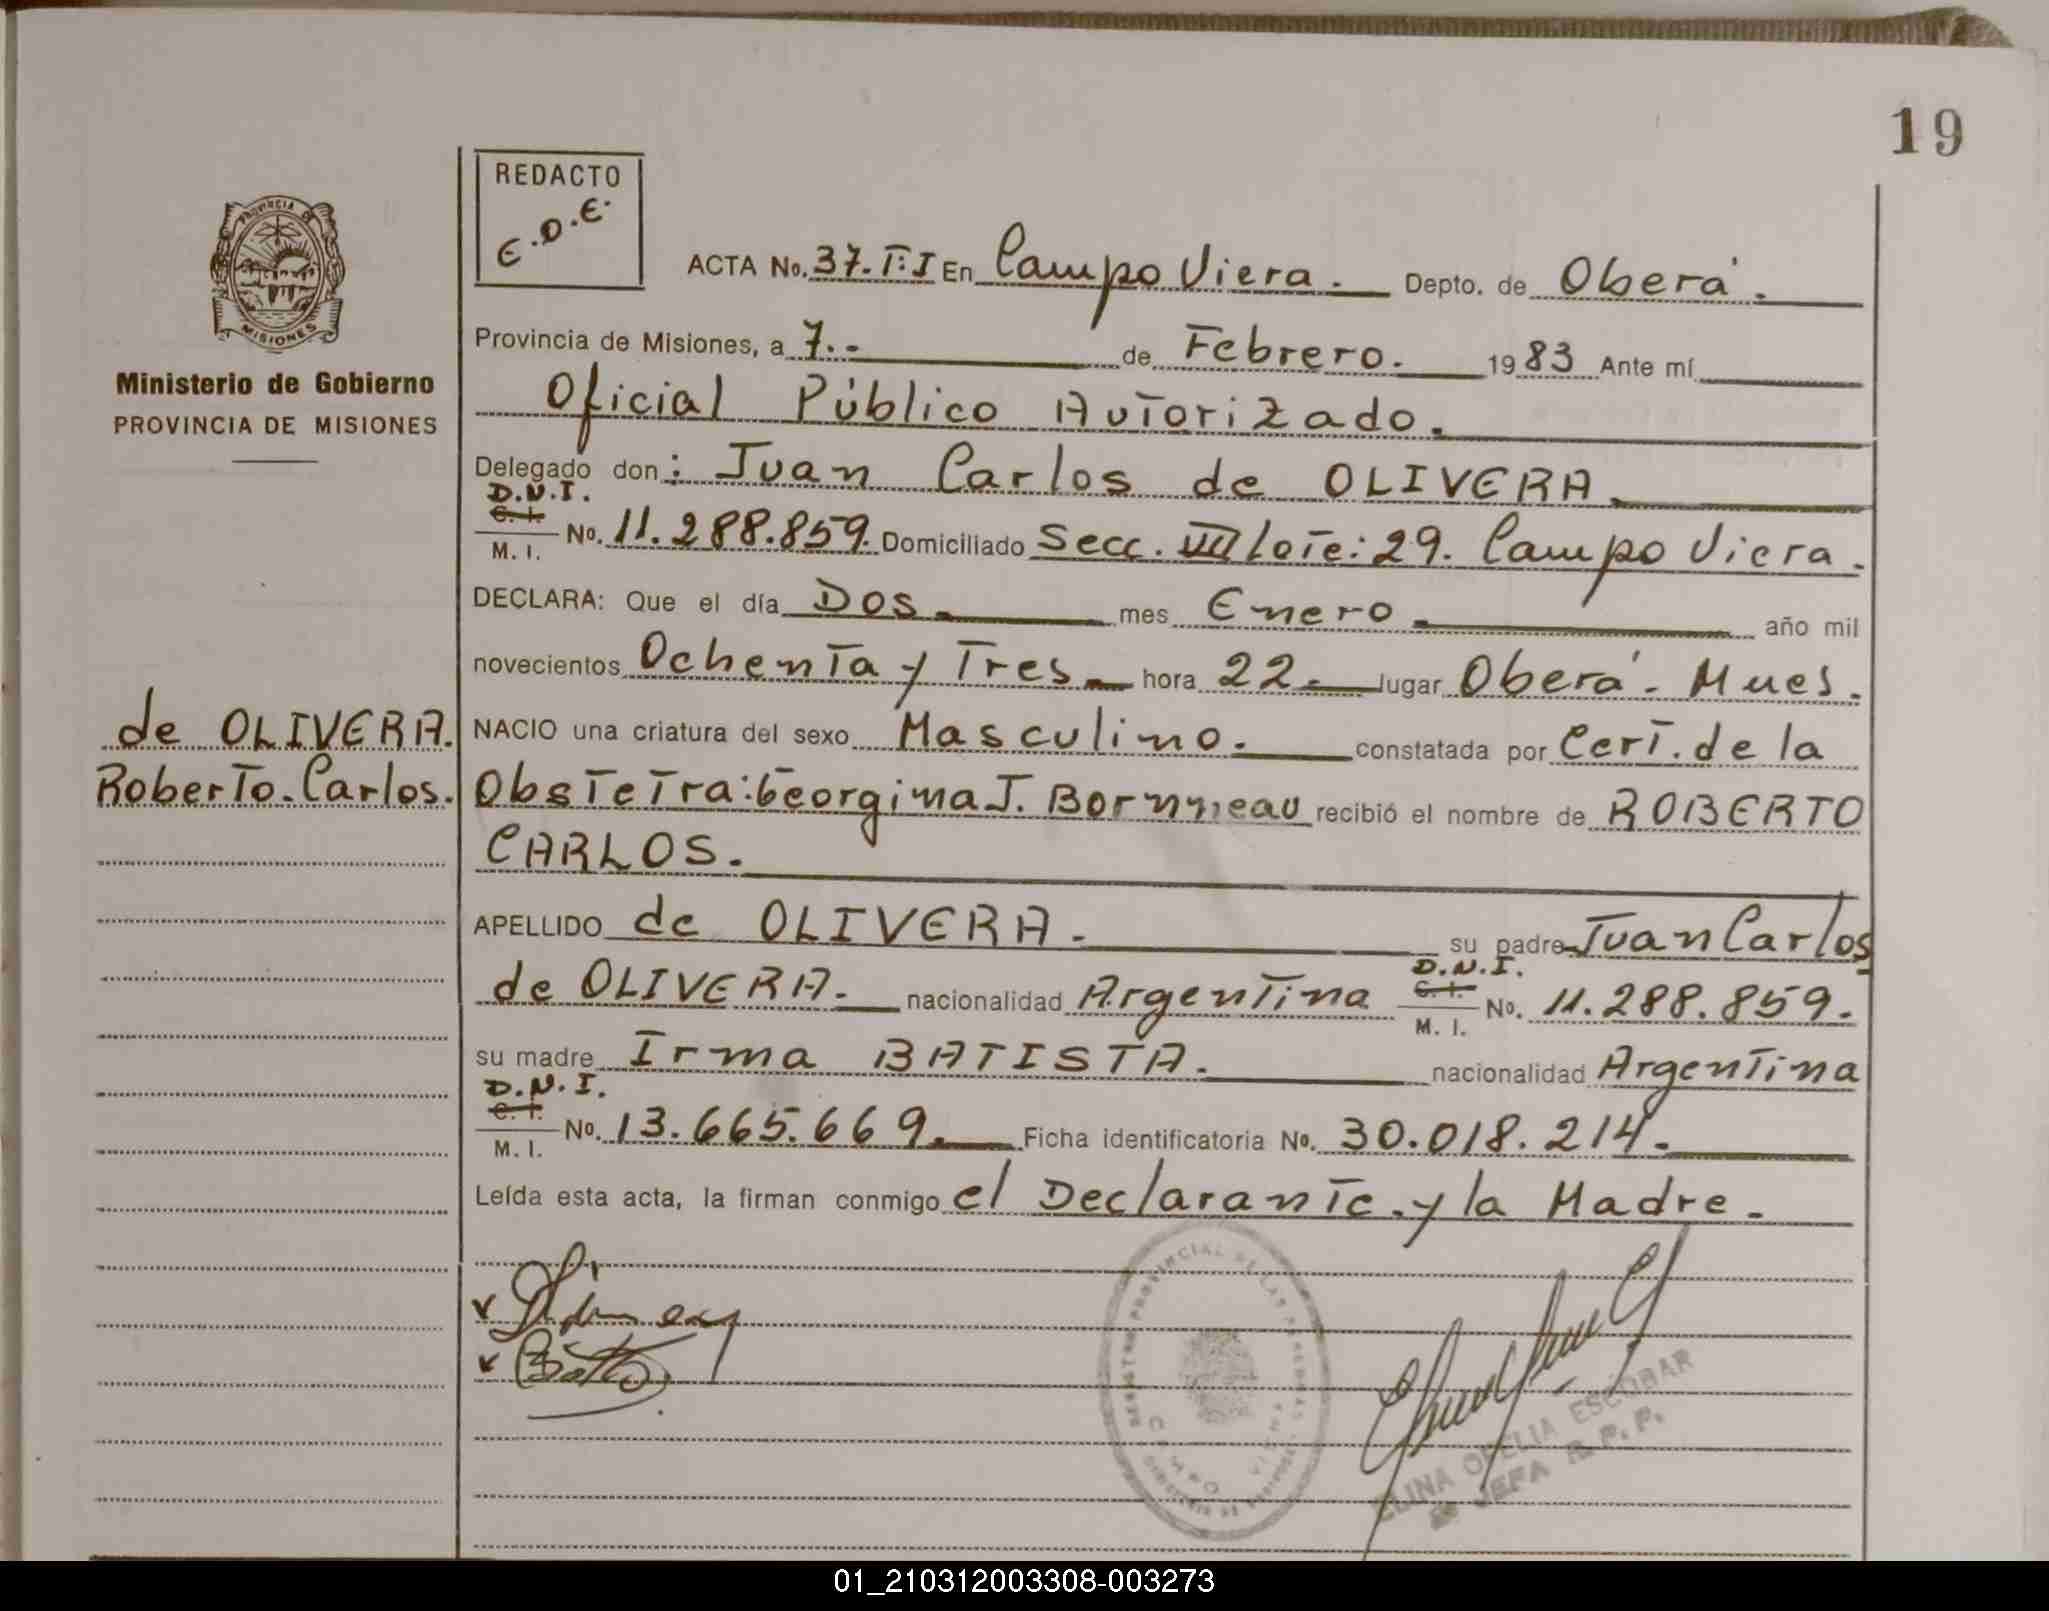 19
REDACTO
E.O.E.
PROVINCIA DE
MISIONES
Ministerio de Gobierno
PROVINCIA DE MISIONES
ACTA No. 37. T: I En Campo Viera. Depto. de Oberá.
Provincia de Misiones, a 7.- de Febrero. 1983 Ante mí
Oficial Público Autorizado.
Delegado don: Juan Carlos de OLIVERA
D.N.I.
C. I.
M. I. No. 11.288.859. Domiciliado Secc. VII lote: 29. Campo Viera.
DECLARA: Que el día Dos mes Enero año mil
novecientos Ochenta y Tres hora 22. lugar Oberá. Mnes.
de OLIVERA. NACIO una criatura del sexo Masculino. constatada por Cert. de la
Roberto. Carlos. Obstetra: Georgina J. recibió el nombre de ROBERTO
CARLOS.
APELLIDO de OLIVERA. su padre Juan Carlos
de OLIVERA. nacionalidad Argentina D.N.I. C. I. M. I. No. 11.288.859.
su madre Irma BATISTA. nacionalidad Argentina
D.N.I.
C. I.
M. I. No. 13.665.669. Ficha identificatoria No. 30.018.214.
Leída esta acta, la firman conmigo el Declarante. y la Madre.
REGISTRO PROVINCIAL DE LAS PERSONAS
CAMPO VIERA
ELINA OFELIA ESCOBAR
JEFA R.P.P.
01_210312003308-003273